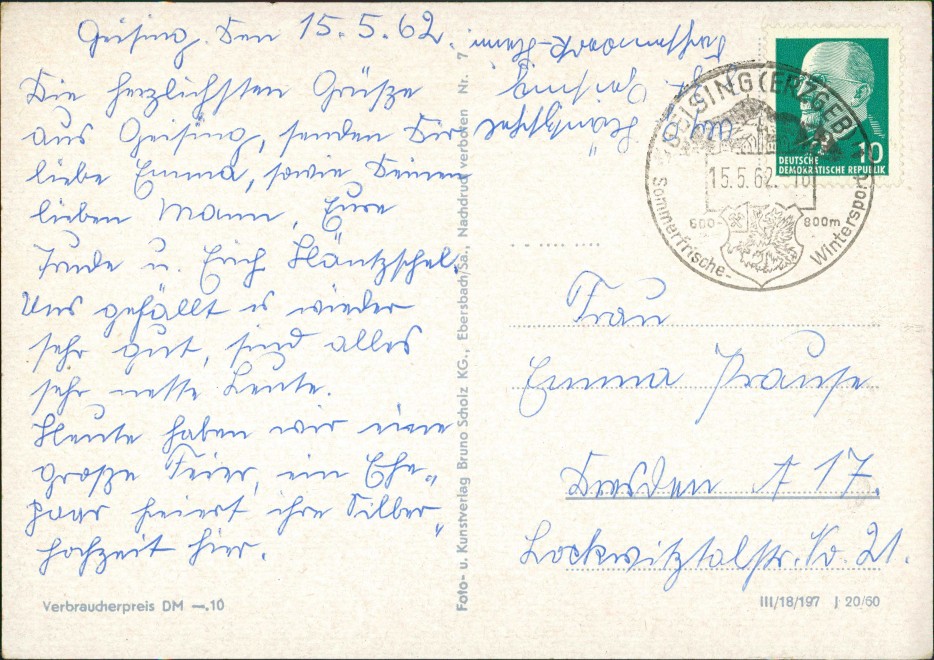 Geising, Den 15.5.62.
Die herzlichsten Grüße
aus Geising, senden Dir
liebe Emma, sowie Deinem
lieben Mann, Eure
Trude u. Erich Häntzschel.
Uns gefällt es wieder
sehr gut, sind alles
sehr nette Leute.
Heute haben wir eine
große Feier, ein Ehe-
paar feiert ihre Silber-
hochzeit hier.
Verbraucherpreis DM —.10
Foto- u. Kunstverlag Bruno Scholz KG., Ebersbach/Sa., Nachdruck verboten Nr. 7
Abs. Häntzschel
Geising
-Heim
GEISING (ERZGEB)
15.5.62.-18
600- 800m
Sommerfrische- Wintersport
10
DEUTSCHE
DEMOKRATISCHE REPUBLIK
Frau
Emma Krause
Dresden A 17.
Lockwitztalstr. No. 21.
III/18/197 J 20/60